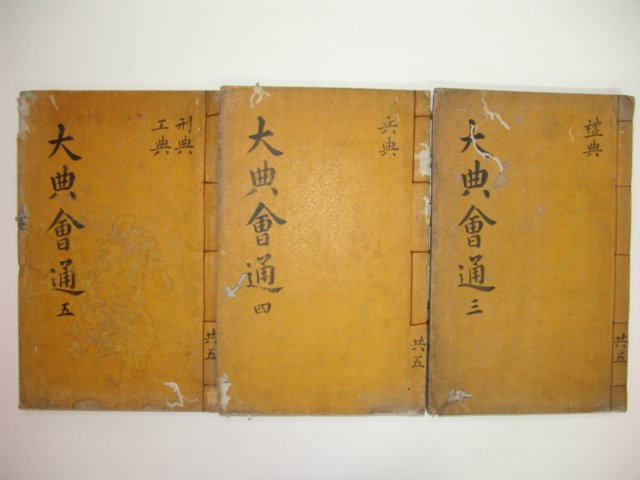 禮典
大典會通 三
共五
兵典
大典會通 四
共五
刑典
工典
大典會通 五
共五